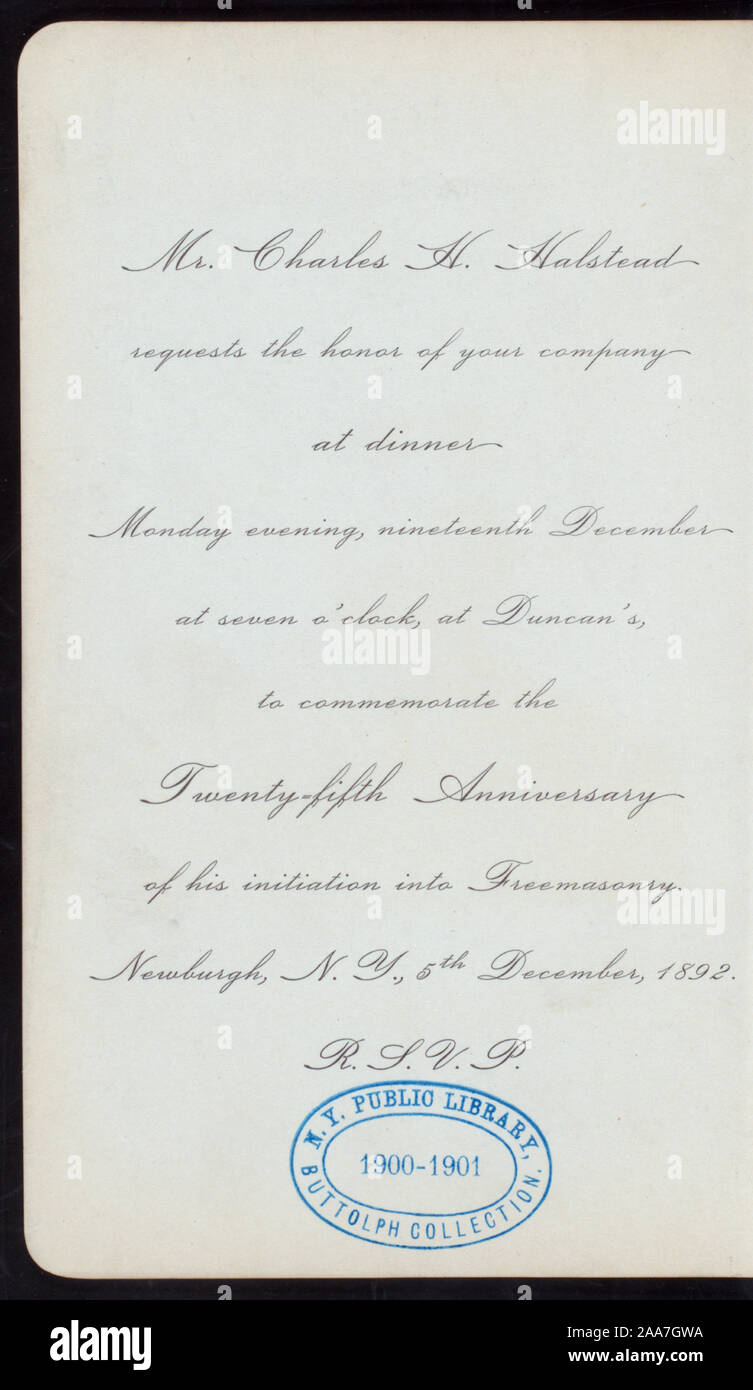 Mr. Charles H. Halstead
requests the honor of your company
at dinner
Monday evening, nineteenth December
at seven o'clock, at Duncan's,
to commemorate the
Twenty-fifth Anniversary
of his initiation into Freemasonry.
Newburgh, N. Y., 5th December, 1892.
R. S. V. P.
N. Y. PUBLIC LIBRARY,
1900-1901
BUTTOLPH COLLECTION.
alamy
alamy
alamy
a
a
a
a
a
a
a
a
a
a
a
a
a
a
alamy
Image ID: 2AA7GWA
www.alamy.com